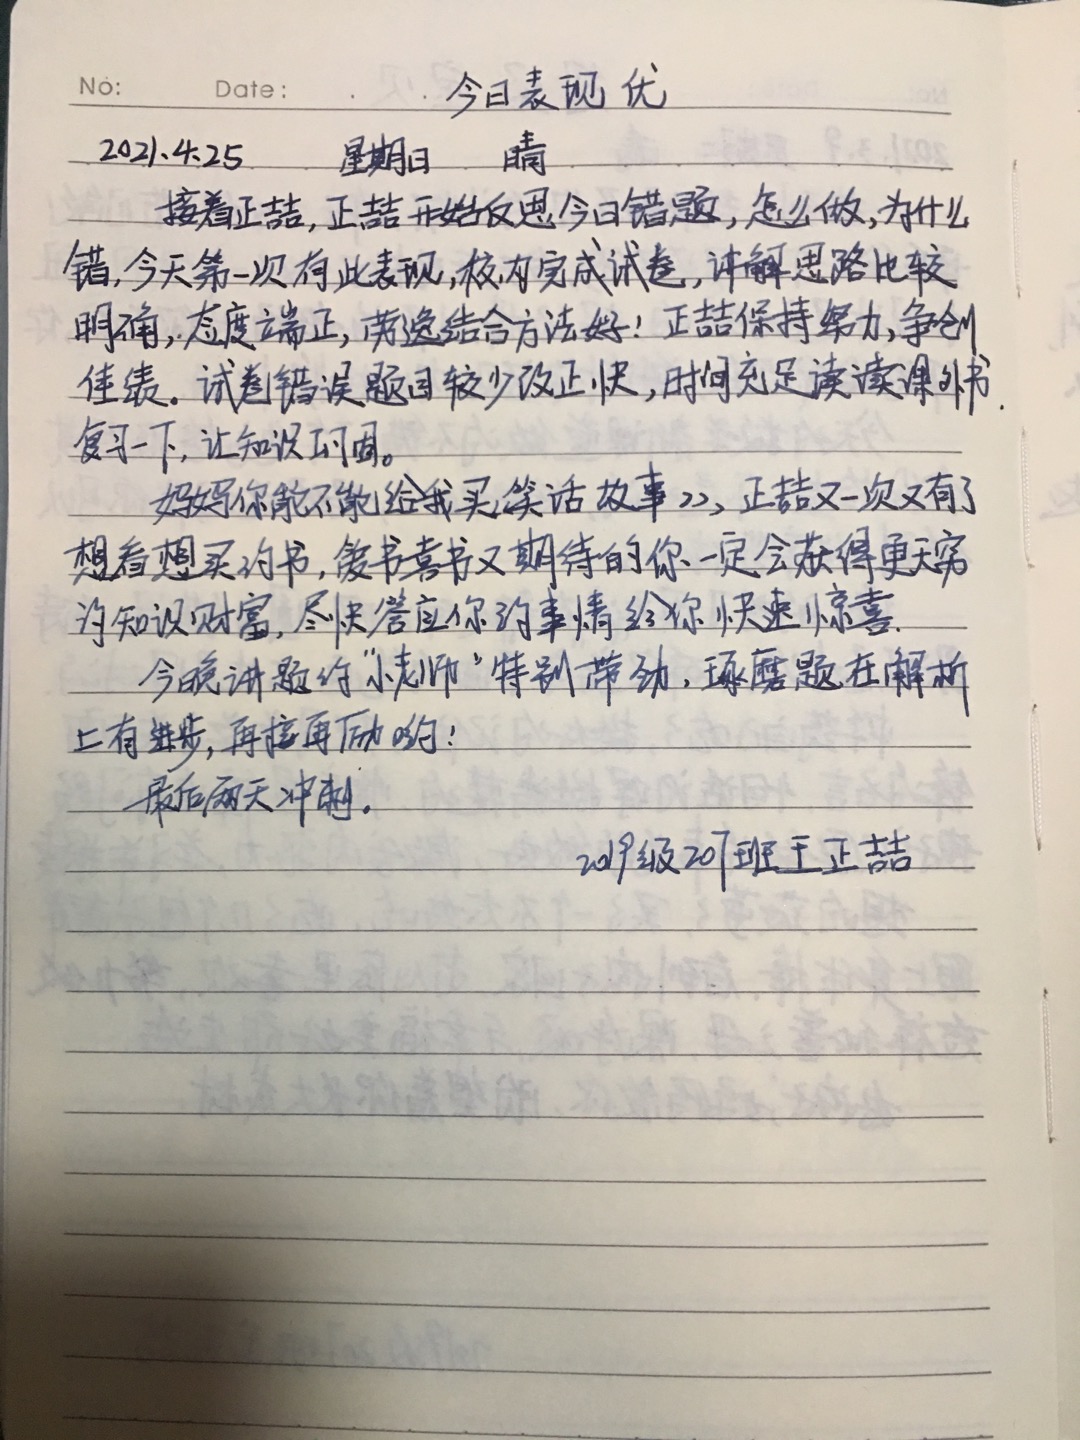 No: Date: 今日表现优
2021.4.25 星期日 晴
接着正喆,正喆开始反思今日错题,怎么做,为什么
错,今天第一次有此表现,校内完成试卷,讲解思路比较
明确,态度端正,劳逸结合方法好!正喆保持努力,争创
佳绩。试卷错误题目较少改正快,时间充足读读课外书.
复习一下,让知识巩固。
妈妈你能不能给我买笑话故事>>,正喆又一次又有了
想看想买的书,爱书喜书又期待的你一定会获得更天窮
的知识财富,尽快答应你的事情给你快速惊喜.
今晚讲题的“小老师”特别带劲,琢磨题在解析
上有进步,再接再励哟!
最后两天冲刺.
2019级207班王正喆